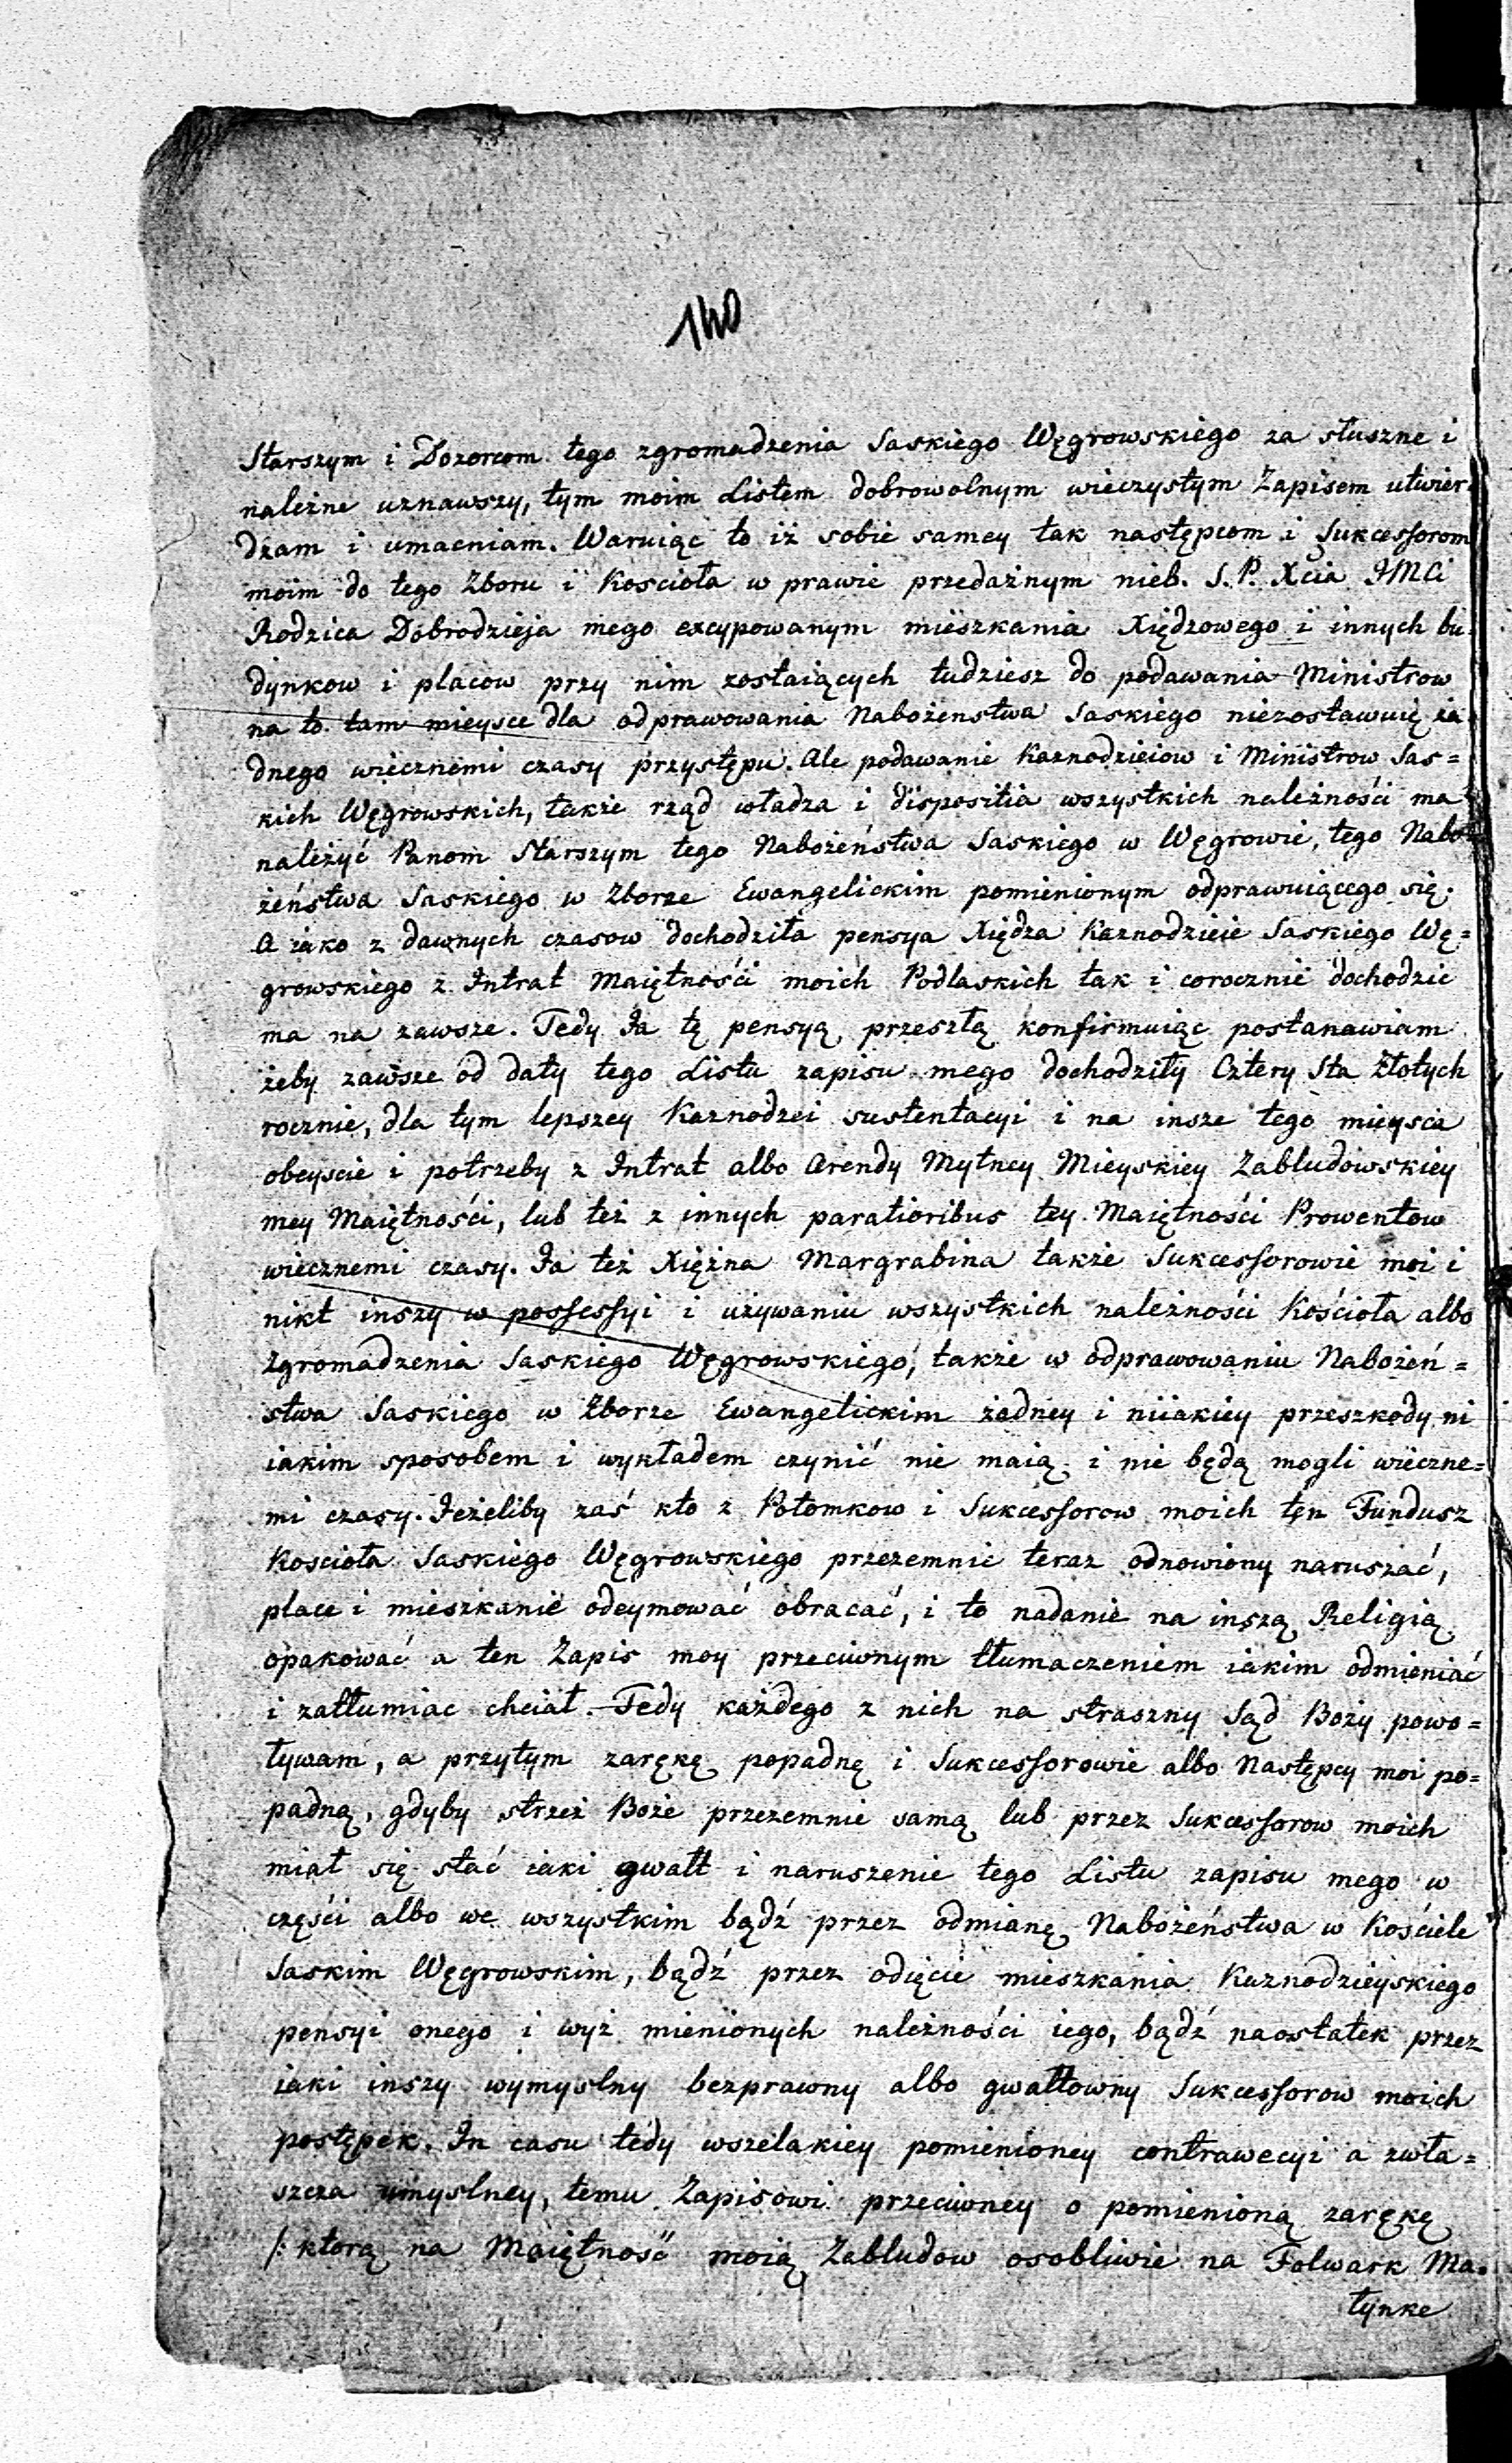 140
Starszym i Dozorcom tego zgromadzenia Saskiego Węgrowskiego za słuszne i
należne uznawszy, tym moim Listem dobrowolnym wieczystym Zapisem utwier
dzam i umacniam. Waruiąc to iż sobie samey tak następcom i Sukcessorom
moim do tego Zboru i Koscioła w prawie przedażnym nieb. S. P. Xcia JMCi
Rodzica Dobrodzieja mego excypowanym miészkania Xiędzowego i innych bu=
dynkow i placow przy nim zostaiących tudziesz do podawania Ministrow
na to tam mieysce dla odprawowania Nabożenstwa Saskiego niezostawuię ża
dnego wiecznemi czasy przystępu. Ale podawanie Kaznodzieiow i Ministrow Sas=
kich Węgrowskich, także rząd władza i disposítia wszystkich należności ma
należyć Panom Starszym tego Nabożeństwa Saskiego w Węgrowie, tego Nabo=
żeństwa Saskiego w Zborze Ewangelickim pomienionym odprawuiącego się.
A iako z dawnych czasow dochodziła pensya Xiędza Kaznodzieie Saskiego Wę=
growskiego z Intrat Maiętności moich Podlaskich tak i corocznie dochodzic
ma na zawsze. Tedy Ia tę pensyą przeszłą konfirmuiąc postanawiam
żeby zawsze od daty tego Listu zapisu mego dochodziły Cztery Sta Złotych
rocznie, dla tym lepszey Kaznodzei sustentacyi i na insze tego mieysca
obeyscie i potrzeby z Intrat albo Arendy Mytney Mieyskiey Zabludowskiey
mey Maiętności, lub też z innych paratioribus tey Maiętności Prowentow
wiecznemi czasy. Ia też Xiężna Margrabina także Sukcessorowie moi i
nikt inszy w possessyi i używaniu wszystkich należności Kościoła albo
zgromadzenia Saskiego Węgrowskiego, także w odprawowaniu Nabożeń=
stwa Saskiego w Zborze Ewangelickim żadney i niiakiey przeszkody ni
iakim sposobem i wykładem czynić nie maią i nie będą mogli wieczne=
mi czasy. Ieżeliby zaś kto z Potomkow i Sukcessorow moich ten Fundusz
Koscioła Saskiego Węgrowskiego przezemnie teraz odnowiony naruszać,
place i mieszkanie odeymować obracać, i to nadanie na inszą Religią
opakować a ten Zapis moy przeciwnym tłumaczeniem iakim odmieniać
i zatłumiac chciał. Tedy każdego z nich na straszny Sąd Boży powo=
ływam, a przytym zarękę popadnę i Sukcessorowie albo Następcy moi po=
padną, gdyby strzeż Boże przezemnie samą lub przez Sukcessorow moich
miał się stać iaki gwałt i naruszenie tego Listu zapisu mego w
części albo we wszystkim bądź przez odmianę Nabożeństwa w Kościele
Saskim Węgrowskim, bądź przez odięcie mieszkania Kaznodzieyskiego
pensyi onego i wyż mienionych należności iego, bądź naostatek przez
iaki inszy wymyslny bezprawny albo gwałtowny Sukcessorow moich
postępek. In casu tedy wszelakiey pomienioney contrawecyi a zwła=
szcza umyslney, temu Zapisowi przeciwney o pomienioną zarękę
/: ktorą na Maiętność moią Zabludow osobliwie na Folwark Ma=
łynke